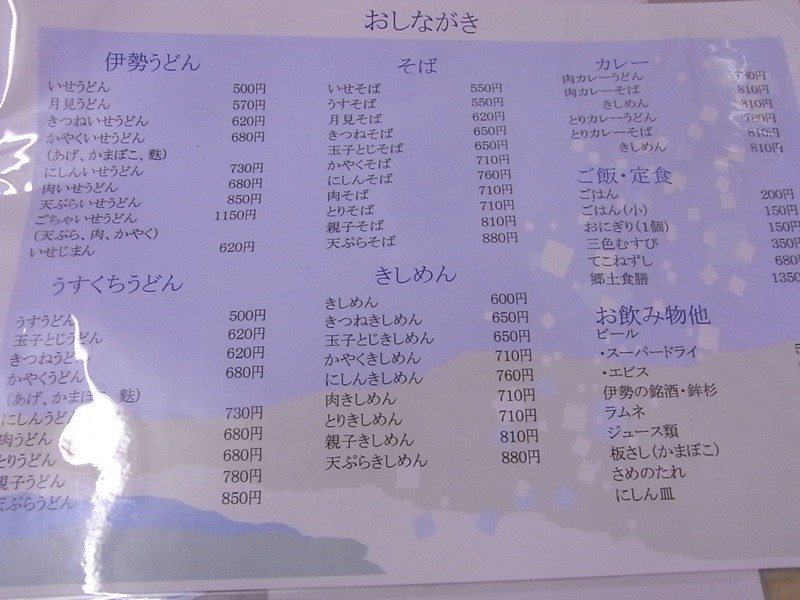 おしながき
伊勢うどん
いせうどん 500円
月見うどん 570円
きつねいせうどん 620円
かやくいせうどん 680円
(あげ、かまぼこ、麩)
にしんいせうどん 730円
肉いせうどん 680円
天ぷらいせうどん 850円
ごちゃいせうどん 1150円
(天ぷら、肉、かやく)
いせじまん 620円
うすくちうどん
うすうどん 500円
玉子とじうどん 620円
きつねうどん 620円
かやくうどん 680円
(あげ、かまぼこ、麩)
にしんうどん 730円
肉うどん 680円
とりうどん 680円
親子うどん 780円
天ぷらうどん 850円
そば
いせそば 550円
うすそば 550円
月見そば 620円
きつねそば 650円
玉子とじそば 650円
かやくそば 710円
にしんそば 760円
肉そば 710円
とりそば 710円
親子そば 810円
天ぷらそば 880円
きしめん
きしめん 600円
きつねきしめん 650円
玉子とじきしめん 650円
かやくきしめん 710円
にしんきしめん 760円
肉きしめん 710円
とりきしめん 710円
親子きしめん 810円
天ぷらきしめん 880円
カレー
肉カレーうどん 780円
肉カレーそば 810円
きしめん 810円
とりカレーうどん 780円
とりカレーそば 810円
きしめん 810円
ご飯・定食
ごはん 200円
ごはん(小) 150円
おにぎり(1個) 150円
三色むすび 350円
てこねずし 680
郷土食膳 1350
お飲み物他
ビール
・スーパードライ
・エビス
伊勢の銘酒・鉾杉
ラムネ
ジュース類
板さし(かまぼこ)
さめのたれ
にしん皿